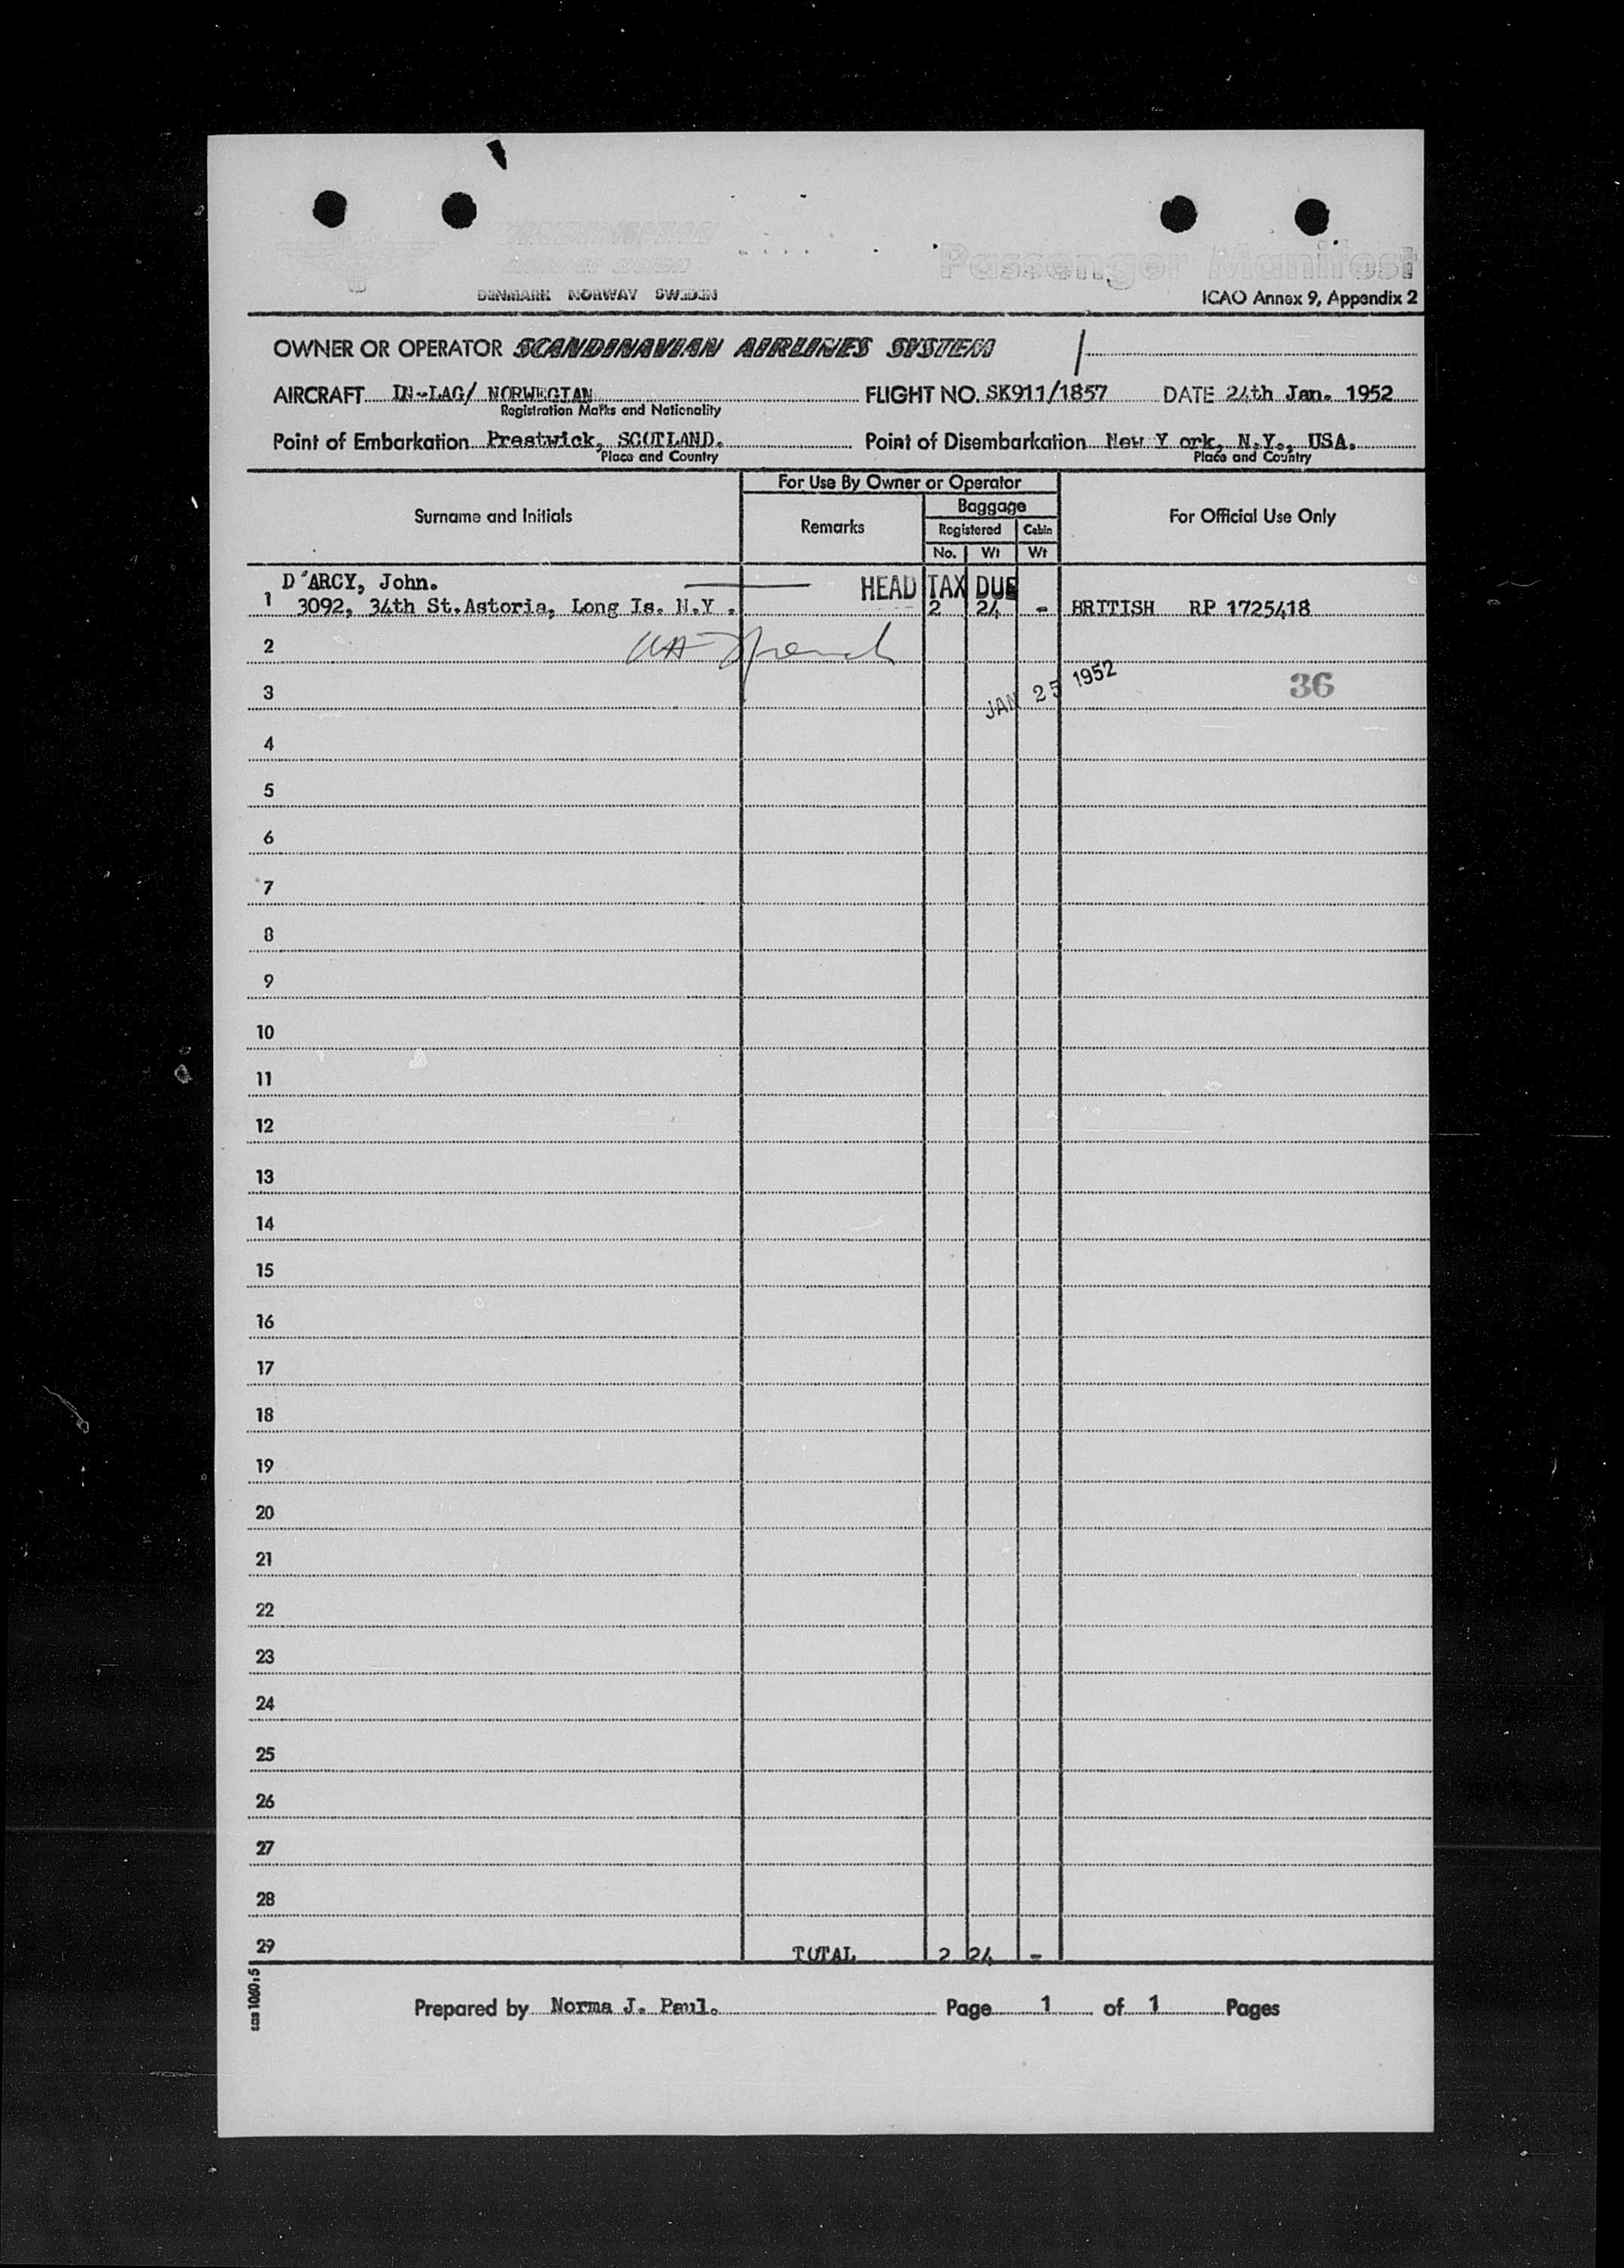 SCANDINAVIAN
AIRLINES SYSTEM
DENMARK NORWAY SWEDEN
Passenger Manifest
ICAO Annex 9, Appendix 2
OWNER OR OPERATOR SCANDINAVIAN AIRLINES SYSTEM
AIRCRAFT LN-LAG/ NORWEGIAN FLIGHT NO. SK911/1857 DATE 24th Jan. 1952
Registration Marks and Nationality
Point of Embarkation Prestwick, SCOTLAND. Point of Disembarkation New Y ork, N.Y., USA.
Place and Country Place and Country
For Use By Owner or Operator
Surname and Initials Remarks Baggage For Official Use Only
Registered Cabin
No. Wt Wt
D'ARCY, John. HEAD TAX DUE
1 3092, 34th St.Astoria, Long Is. N.Y . 2 24 - BRITISH RP 1725418
2
3 JAN 25 1952 36
4
5
6
7
8
9
10
11
12
13
14
15
16
17
18
19
20
21
22
23
24
25
26
27
28
29 TOTAL 2 24 -
sas 1060:5
Prepared by Norma J. Paul. Page 1 of 1 Pages